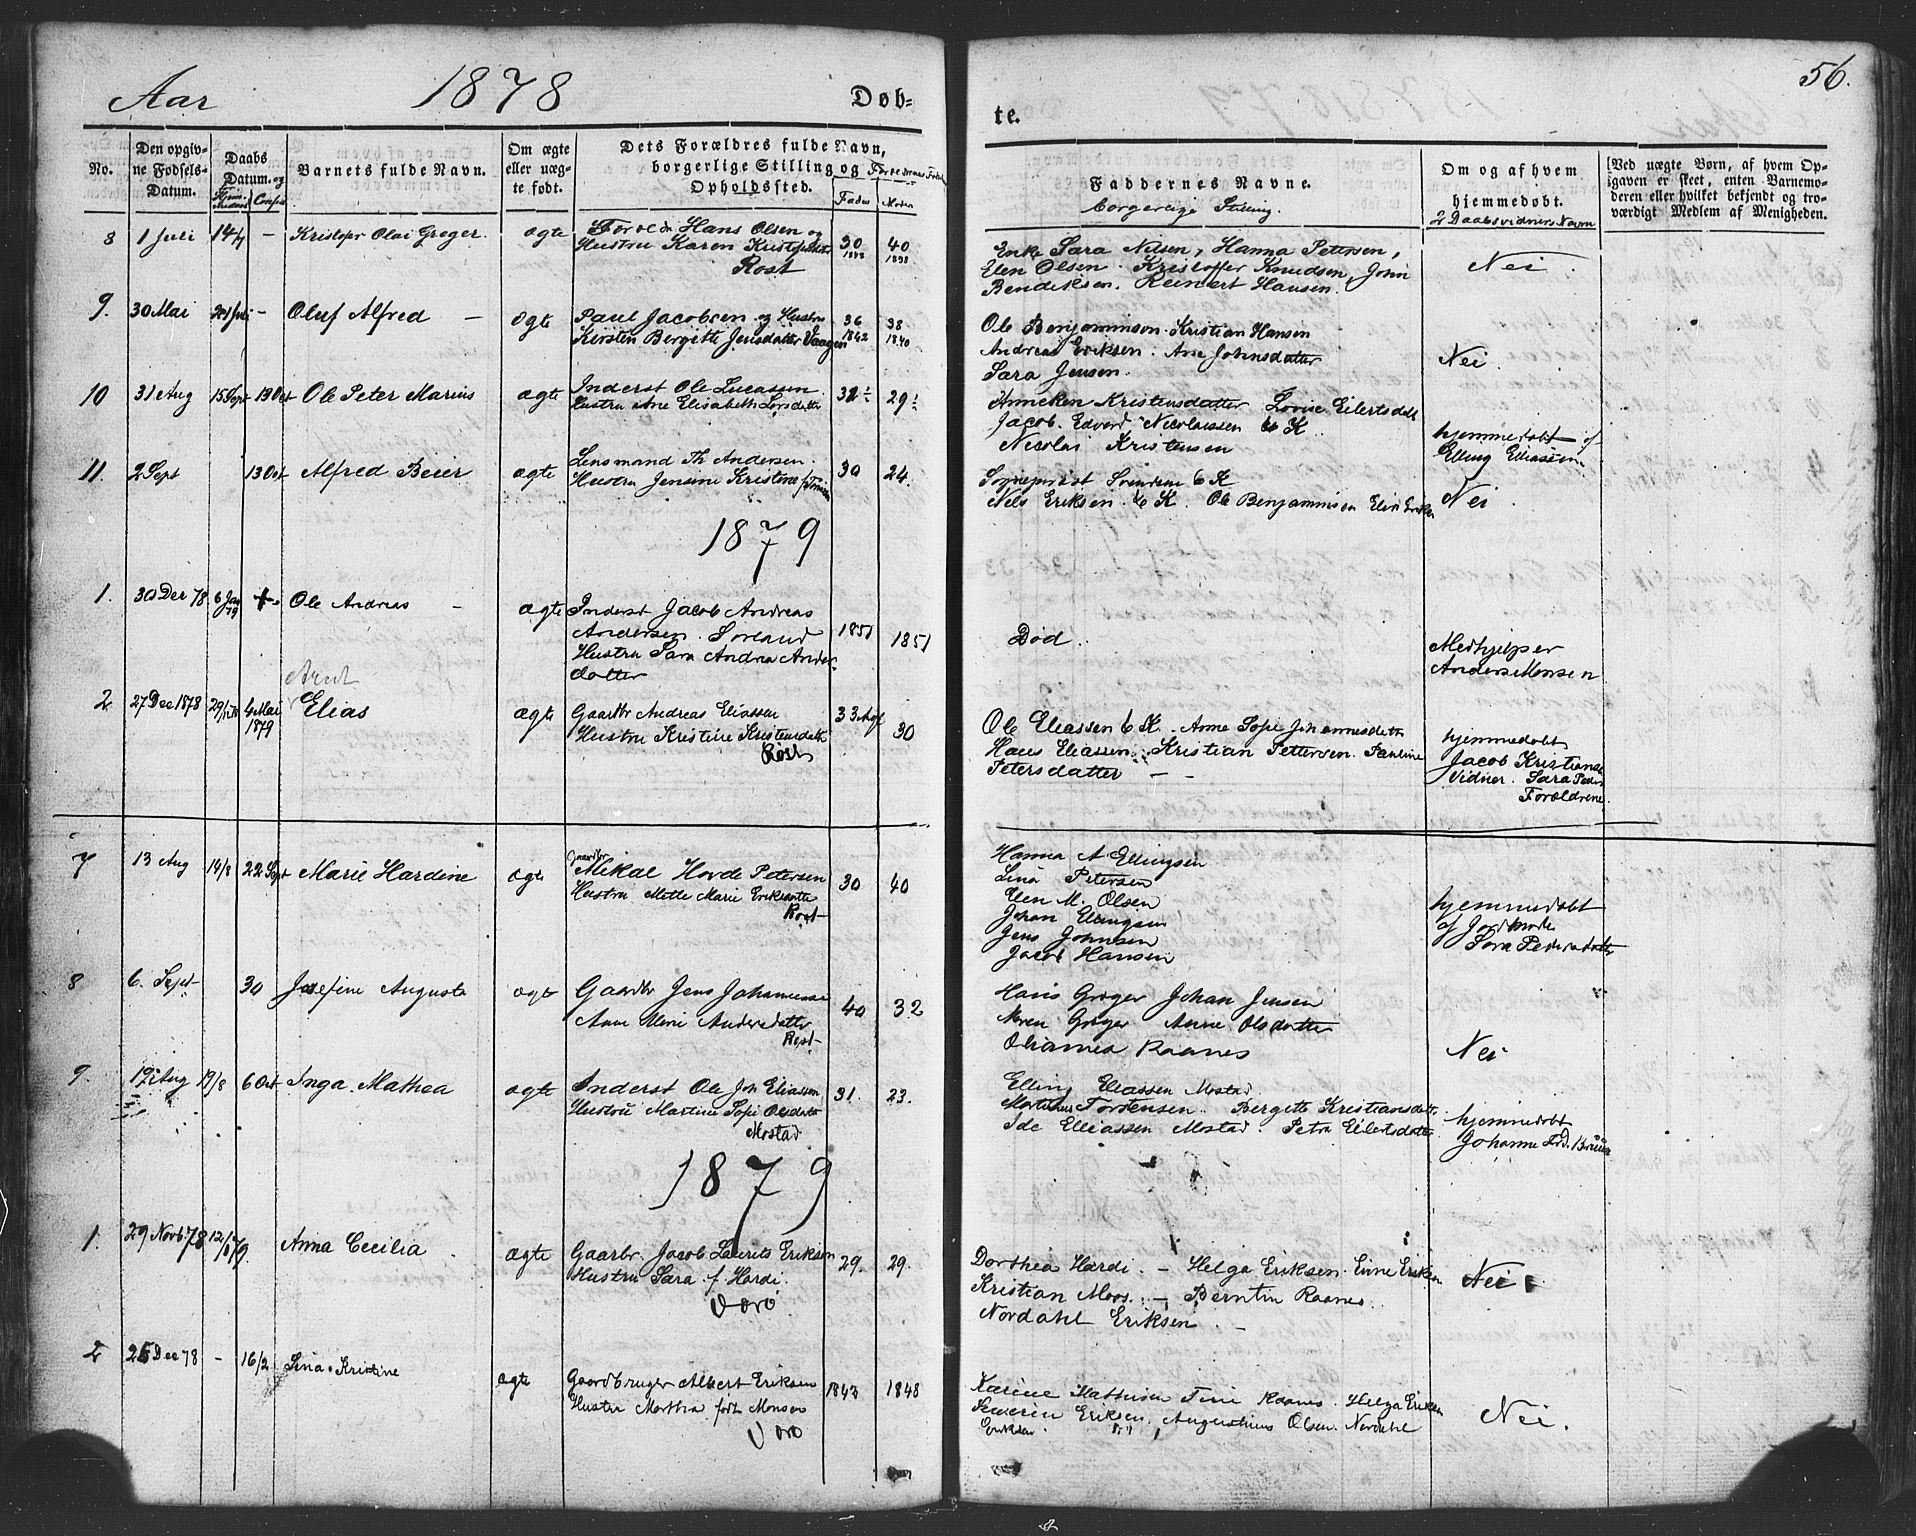 Aar 1878 Døb=
te. 56.
No.
Den opgiv-
ne Fødsels-
Datum.
Daabs
Datum. og
Confir
Barnets fulde Navn.
Om ægte
eller uæg-
te født.
Dets Forældres fulde Navn,
borgerlige Stilling og
Opholdssted.
Fader Moder
Faddernes Navne.
borgerlige Stilling.
Om og af hvem
hjemmedøbt.
2 Daabsvidners Navn
Ved uægte Børn, af hvem Op-
gaven er skeet, enten Barnemo-
deren eller hvilket bekjendt og tro-
værdigt Medlem af Menigheden.
8 1 Juli 14/7 - Kristofr Olai Greger. ægte Hans Olsen og
Hustru Karen 30 40
1838
Røst
Enke Sara Nilsen, Hanna Pettersen,
Elen Olsen. Kristoffer Knudsen, John
Bendiksen. Reinert Hansen.
Nei.
9. 30 Mai - Oluf Alfred - ægte Paul Jacobsen og Hustru 36 38
Kirsten Bergitte Jensdatter Vaagen 1842 1840
Ole Benjaminson. Kristian Hansen
Andreas Eriksen. Ane Johnsdatter
Sara Jensen.
Nei.
10 31 Aug 15 Sept 13 Oct Ole Peter Marius ægte Inderst Ole Lucassen
Hustru Ane Elisabeth Larsdatter 32½ 29½
Anneken Kristensdatter Lovise Eilertsdatt
Jacob. Edvard Nicolaissen 6 K
Nicolai Kristensen
hjemmedøbt af
Elling Eliassen
11. 2 Sept 13 Oct Alfred Beier ægte Lensmand Th Andersen.
Hustru Jensine Kristine 30 24.
Sogneprest 6 K
Nels Eriksen. 6 K. Ole Benjaminson
Nei.
1879
1. 30 Dec 78 6 Jan 79 Ole Andreas - ægte Inderst Jacob Andreas
Andersen. Sørland 1851 1851
Hustru Sara Andrea Anders-
datter
Død.
Medhjelper
Anders Monsen
2 27 Dec 1878 4 Mai
1879
Arnt
Elias ægte Gaardbr Andreas Eliassen 33 30
Hustru Kristine Kristensdatt
Røst
Ole Eliassen 6 K. Anne Sofie Johannesdatt
Hans Eliassen. Kristian Pettersen. Pauline
Petersdatter - -
hjemmedøbt
Jacob Kristians
Vidner. Sara Peders
Forældrene.
7 13 Aug 14/8 22 Sept Marie Hardine ægte Gaardbr
Mikal Horde Petersen 30 40
Hustru Mette Marie Eriksdatte
Røst
Hanna A Ellingsen
Lina Petersen
Elen M. Olsen
Johan Ellingsen
Jens Johnsen
Jacob Hansen
hjemmedøbt
af Jordmoder
Sara Pedersdatter
8 6. Sept 30 Josefine Augusta ægte Gaardbr Jens Johannesse 40 32
Anne Marie Andersdatter
Røst
Hans Greger Johan Jensen
Maren Greger Anne Olsdatter
Olianna Raanes
Nei
9. 19 Aug 19/8 6 Oct Inga Mathea ægte Inderst Ole Joh Eliassen 31. 23.
Hustru Martine Sofie Olsdatt
Mostad
Elling Eliassen Mostad
Martinus Torstensen. Bergitte Kristiansdatt
Ide Elliassen Mostad. Petra Eilertsdatter
hjemmedøbt
Johanne Frd. Bruun
1879
1. 29 Novb. 78 12/1 79. Anna Cecilia ægte Gaarbr. Jacob Laurits Eriksen 29. 29.
Hustru Sara f. Hardi.
Værø
Dorthea Hardi. - Helga Eriksen. Erik
Kristian Moos. - Berntin Raanes.
Nordahl Eriksen. -
Nei
2 25 Dec 78 - 16/2 Lina Kristine ægte Gaardbruger Albert Eriksen 1843 1848
Hustru Martha født Monsen
Værø
Karine Mathisen Tine Raanes. Helga Eriksen
Severin Eriksen. Augustinus Olsen. Nordahl
Eriksen.
Nei.